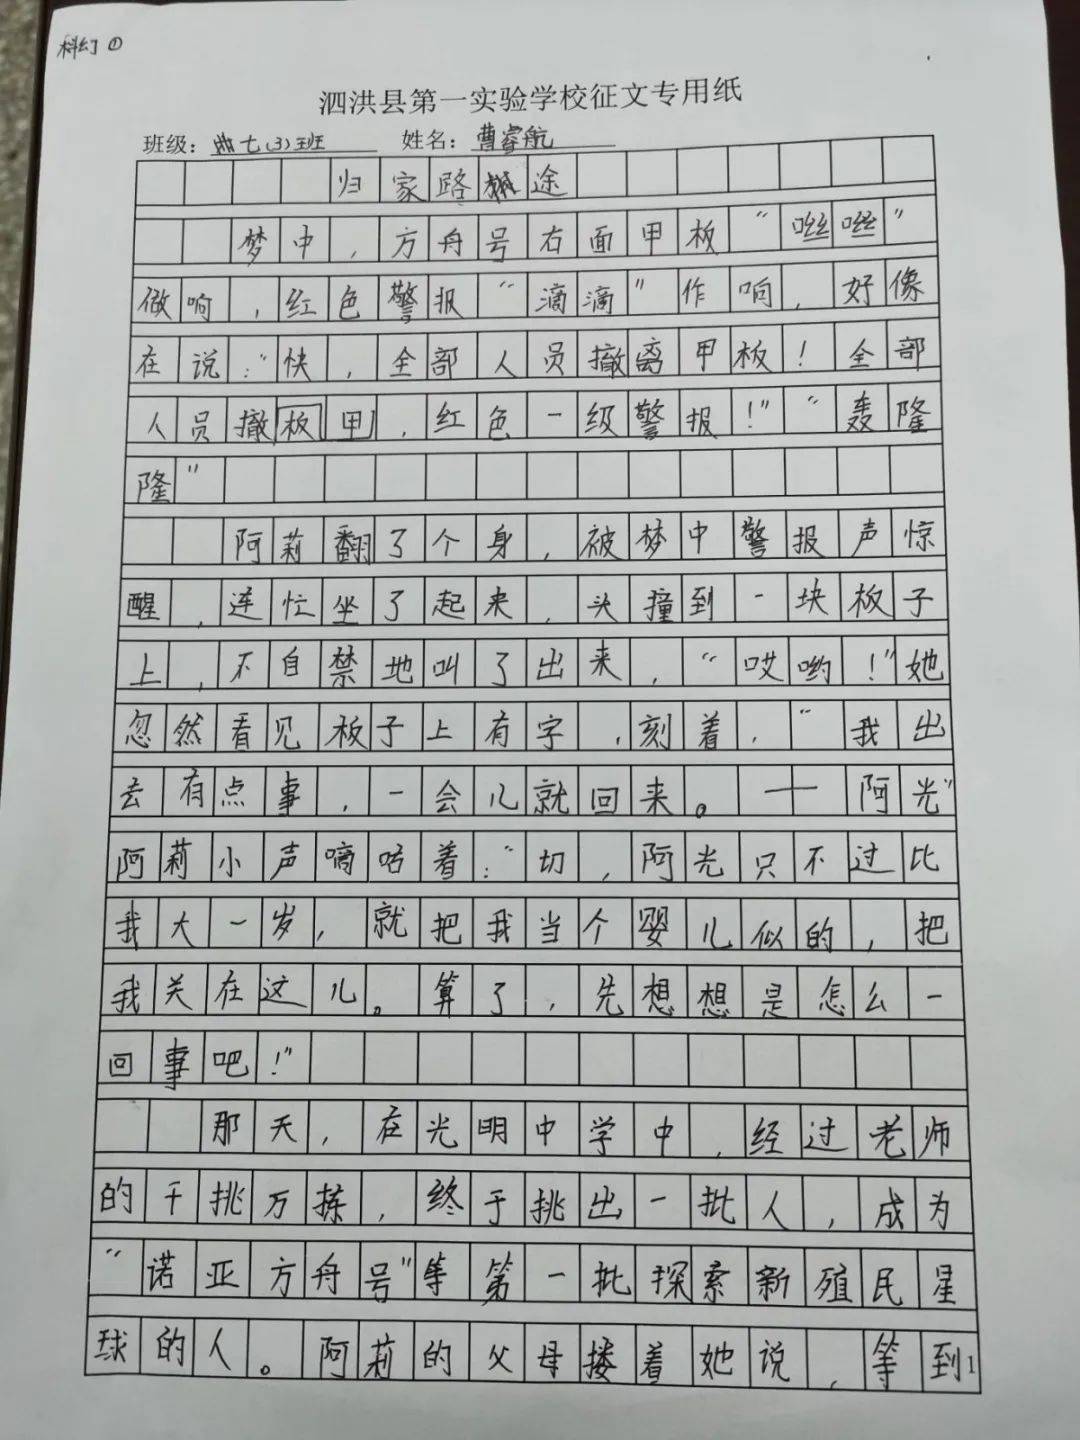 科幻①
泗洪县第一实验学校征文专用纸
班级：七(3)班 姓名：曹睿航
归家路途
梦中，方舟号右面甲板“咝咝”
做响，红色警报“滴滴”作响，好像
在说：“快，全部人员撤离甲板！全部
人员撤板甲，红色一级警报！”“轰隆
隆”
阿莉翻了个身，被梦中警报声惊
醒，连忙坐了起来，头撞到一块板子
上，不自禁地叫了出来，“哎哟！”她
忽然看见板子上有字，刻着，“我出
去有点事，一会儿就回来。——阿光”
阿莉小声嘀咕着：“切，阿光只不过比
我大一岁，就把我当个婴儿似的，把
我关在这儿。算了，先想想是怎么一
回事吧！”
那天，在光明中学中，经过老师
的千挑万拣，终于挑出一批人，成为
“诺亚方舟号”等第一批探索新殖民星
球的人。阿莉的父母搂着她说，等到
1